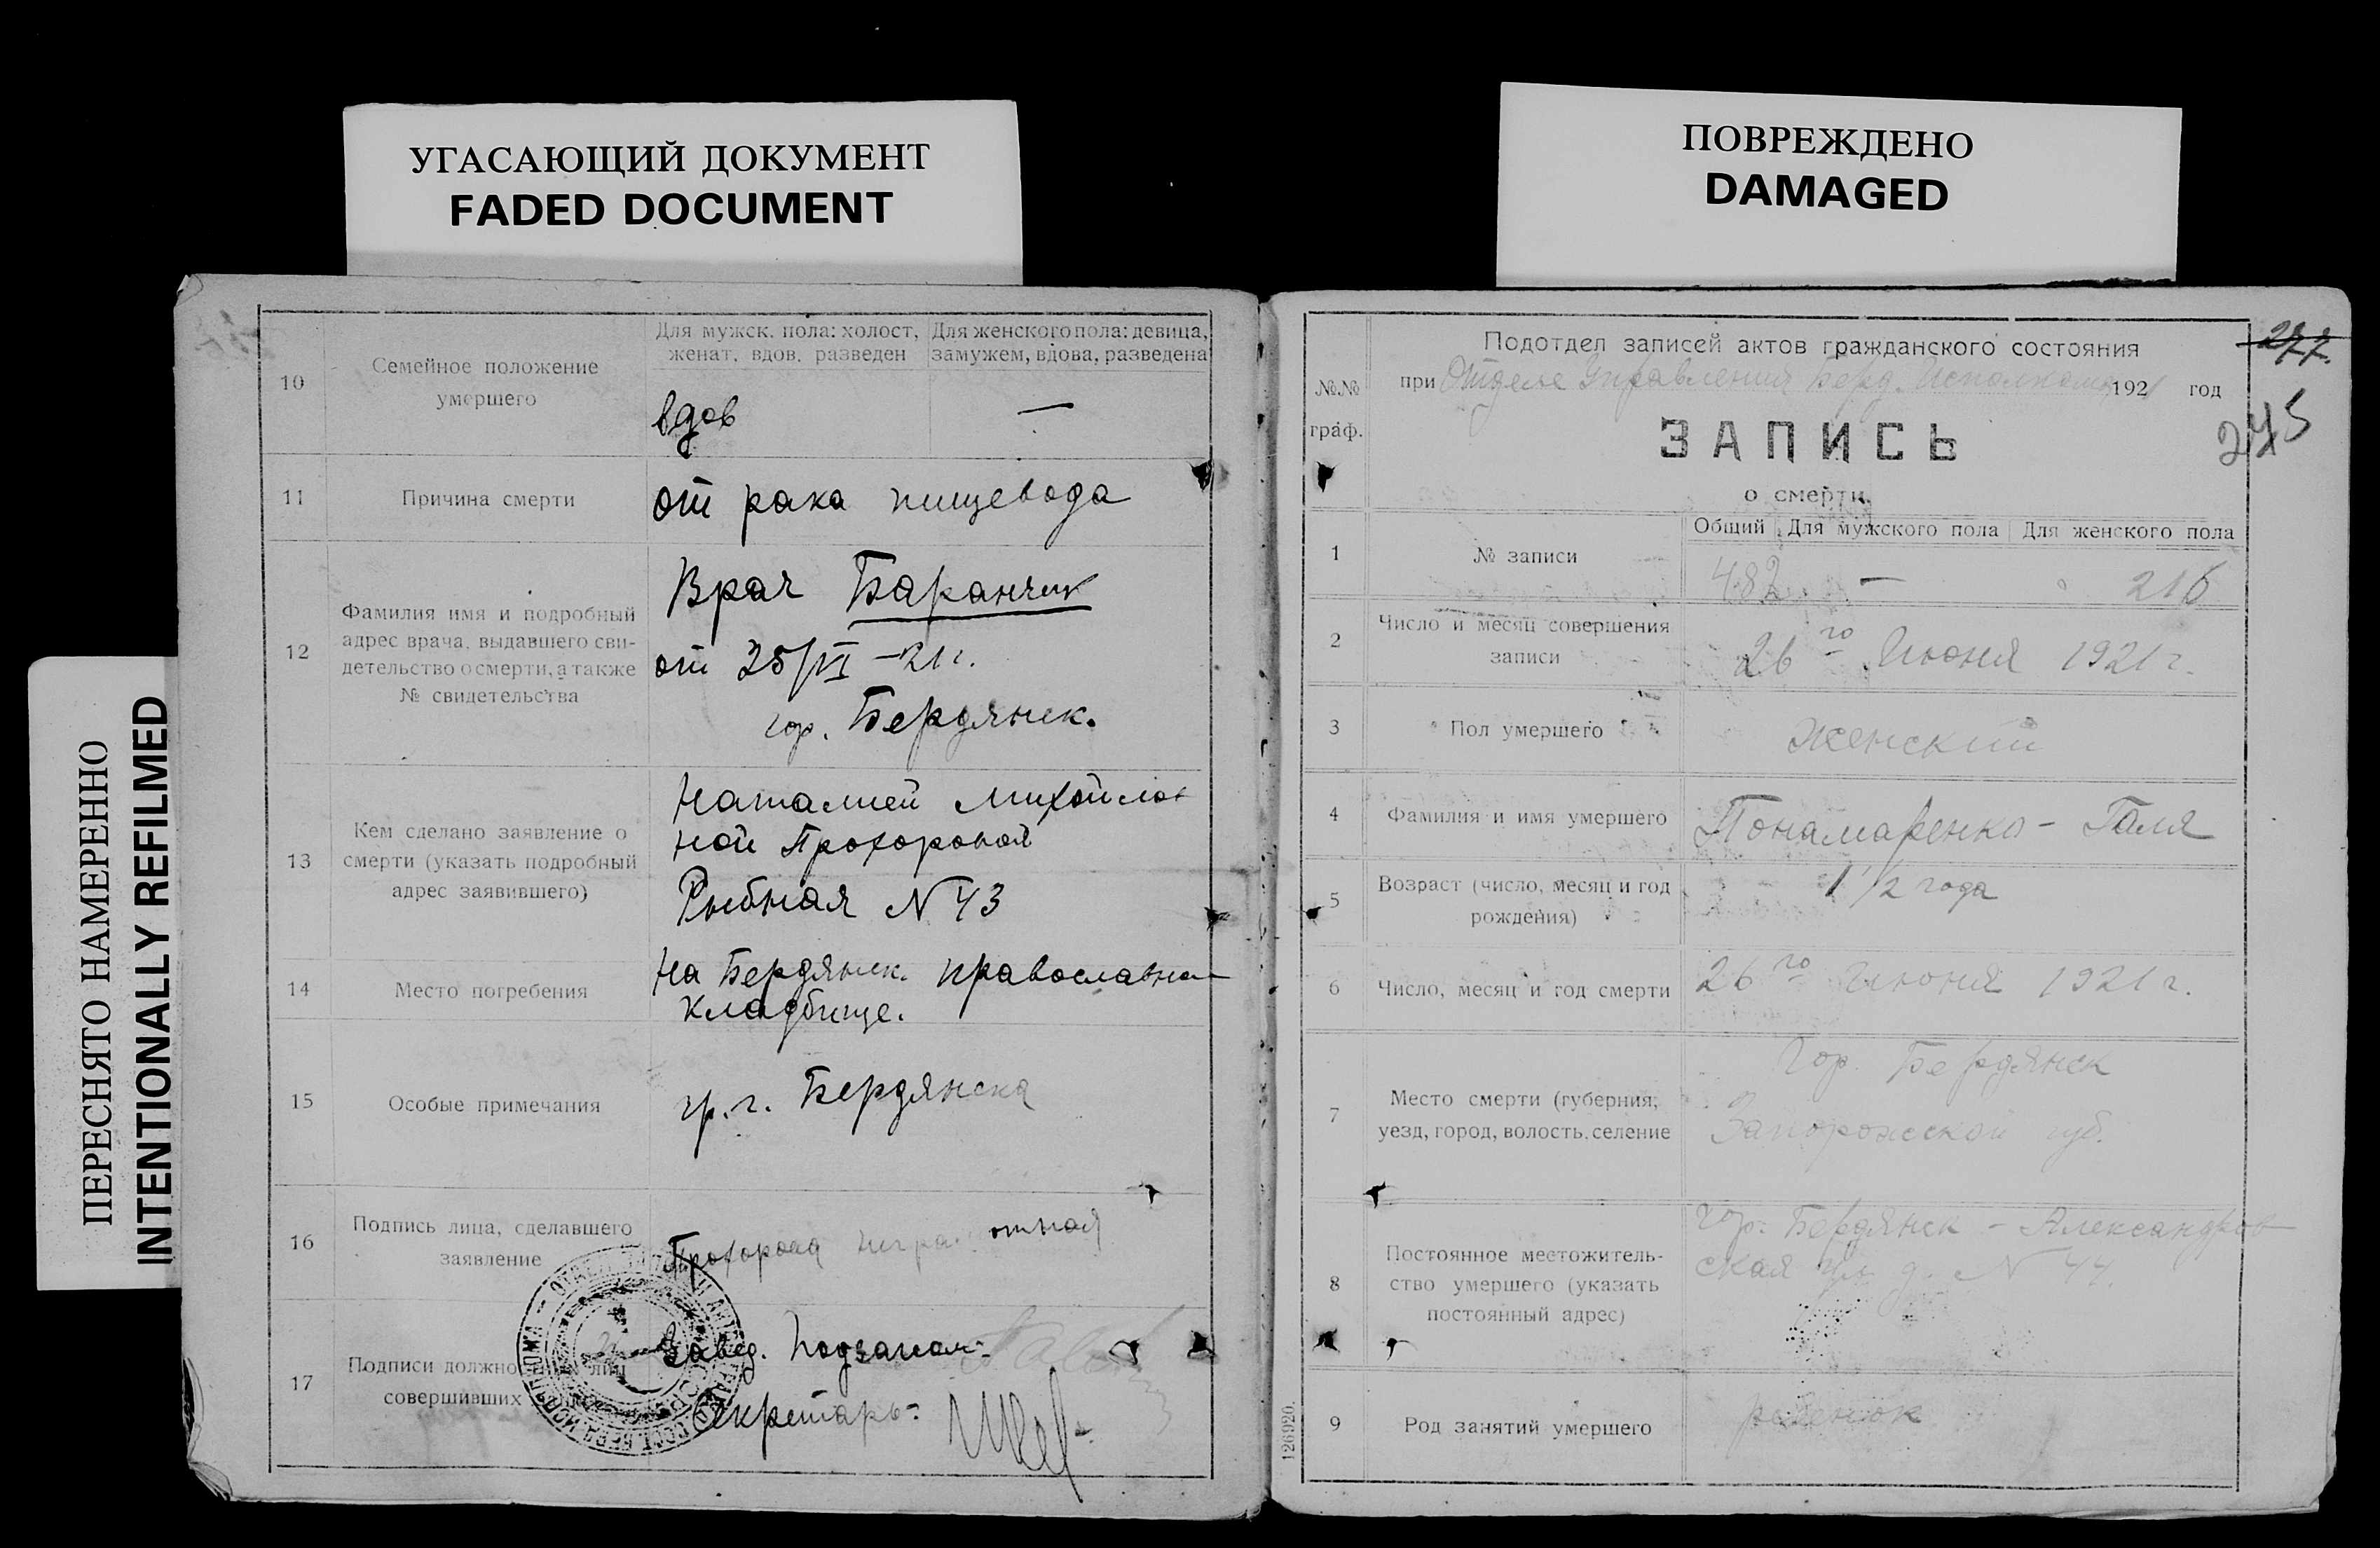 УГАСАЮЩИЙ ДОКУМЕНТ
FADED DOCUMENT
ПОВРЕЖДЕНО
DAMAGED
ПЕРЕСНЯТО НАМЕРЕННО
INTENTIONALLY REFILMED
10
Семейное положение
умершего
Для мужск. пола: холост,
женат, вдов, разведен
Для женского пола: девица,
замужем, вдова, разведена
вдов
—
11
Причина смерти
от рака пищевода
12
Фамилия имя и подробный
адрес врача, выдавшего сви-
детельство о смерти, а также
№ свидетельства
Врач Баранчик
от 25/VI –21 г.
гор. Бердянск.
13
Кем сделано заявление о
смерти (указать подробный
адрес заявившего)
Наталией Михайлов
ной Прохоровой
Рыбная N 43
14
Место погребения
на Бердянск. православн
кладбище.
15
Особые примечания
гр. г. Бердянска
16
Подпись лица, сделавшего
заявление
Прохорова
17
Подписи должно
совершивших
Завед.
Секретарь:
№№
граф.
Подотдел записей актов гражданского состояния
при Отделе Управления Берд. Исполкома 1921 год
277.
245
ЗАПИСЬ
о смерти
1
№ записи
Общий
Для мужского пола
Для женского пола
482. — 216
2
Число и месяц совершения
записи
26го Июня 1921 г.
3
Пол умершего
Женский
4
Фамилия и имя умершего
Понамаренко – Галя
5
Возраст (число, месяц и год
рождения)
1 1/2 года
6
Число, месяц и год смерти
26го Июня 1921 г.
7
Место смерти (губерния,
уезд, город, волость, селение
Гор. Бердянск
Запорожской губ.
8
Постоянное местожитель-
ство умершего (указать
постоянный адрес)
гор. Бердянск – Александров
ская ул. д. N 44.
9
Род занятий умершего
ребенок
126920.